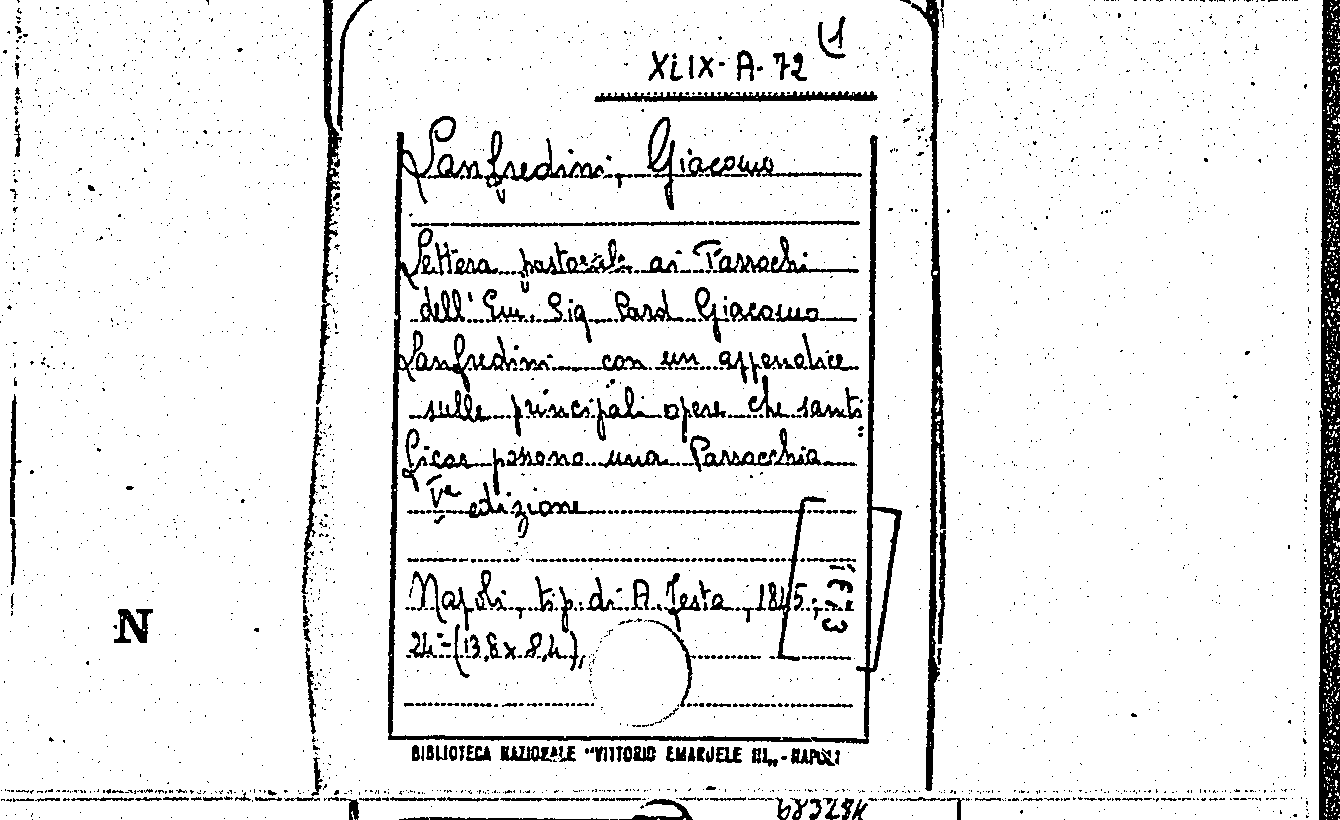 (1
XLIX-A-72
Lanfredini, Giacomo
Lettera pastorale ai Parrochi
dell' Em. Sig. Card Giacomo
Lanfredini con un appendice
sulle principali opere che santi-
ficar possono una Parrocchia
Vª edizione
Napoli, tip. di A. Testa, 1845;
24º (13,8 x 8,4),
N
BIBLIOTECA NAZIONALE "VITTORIO EMANUELE III„ - NAPOLI